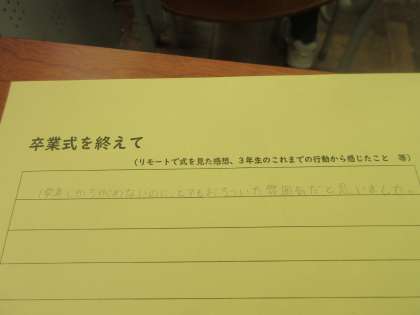 卒業式を終えて
(リモートで式を見た感想、3年生のこれまでの行動から感じたこと 等)
1学年しかちがわないのに、とてもおちついた雰囲気だと思いました。